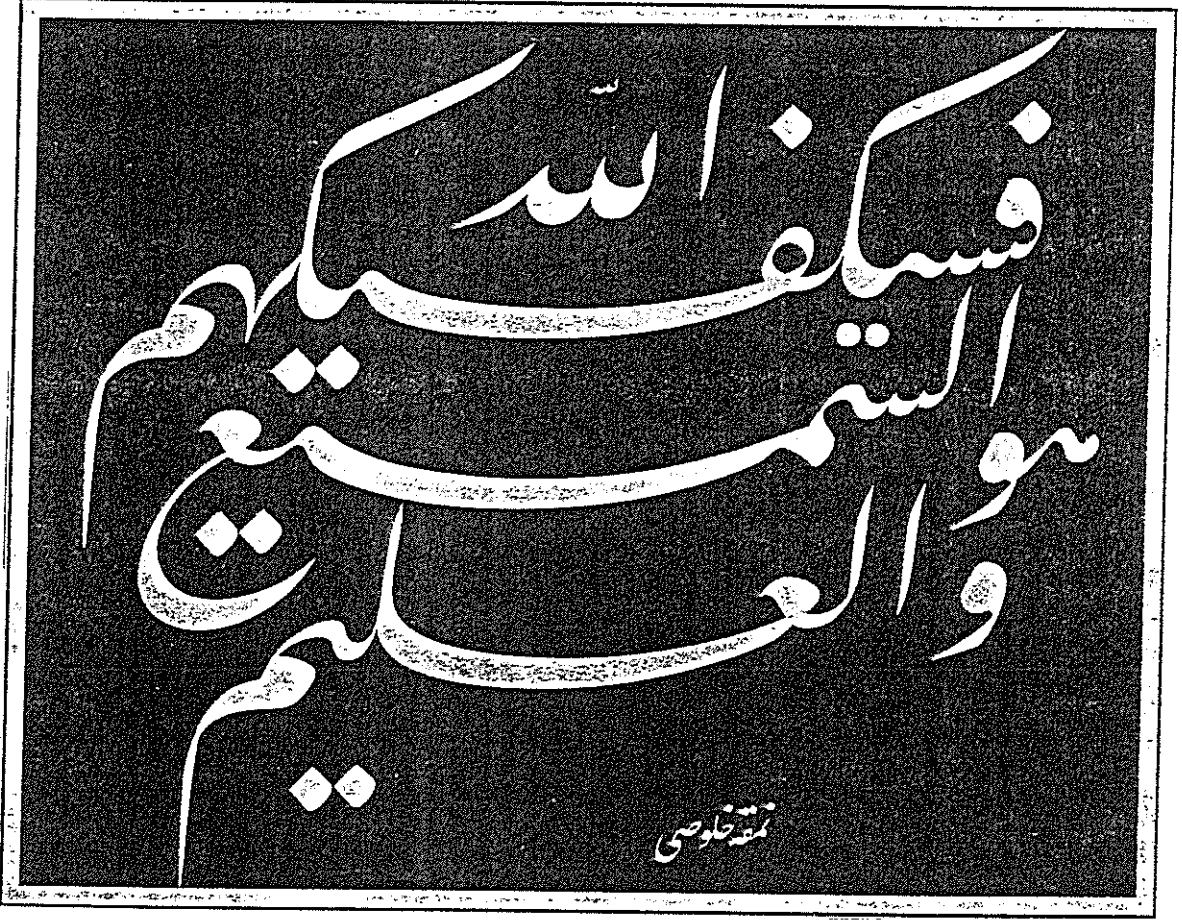 فسيكفيكهم الله
هو السميع
و العليم
نمقه خلوصی